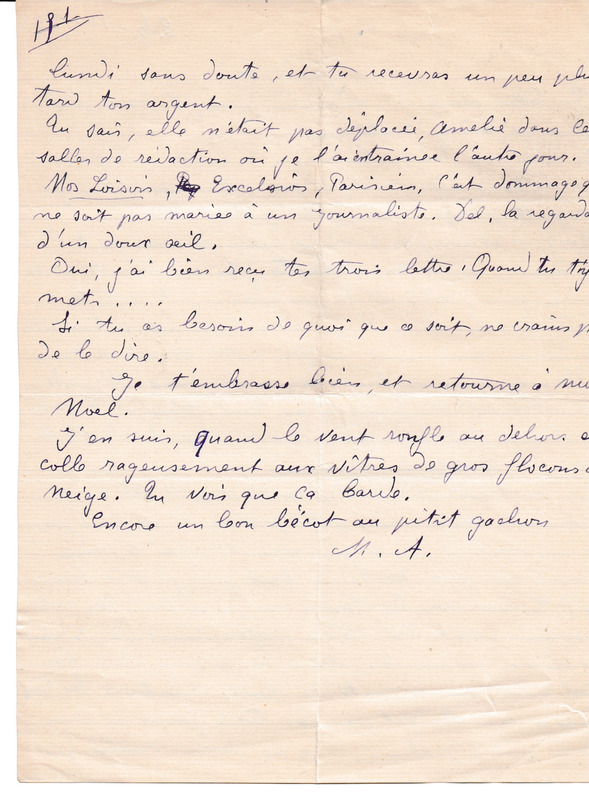 lundi sans doute, et tu recevras un peu plu
tard ton argent.
Tu sais, elle n'était pas déplacée, Amélie dans ce
salles de rédaction où je l'ai entrainée l'autre jour.
Nos Loisirs, Excelsior, Parisien, c'est dommage q
ne soit pas mariée à un journaliste. Del, la regarda
d'un doux œil.
Oui, j'ai bien reçu tes trois lettre! Quand tu t'y
mets ....
Si tu as besoin de quoi que ce soit, ne crains p
de le dire.
Je t'embrasse bien, et retourne à
Noel.
J'en suis, quand le vent ronfle au dehors e
colle rageusement aux vîtres de gros flocons d
neige. Tu vois que ça barde.
Encore un bon bécot au pitit gachou
M. A.